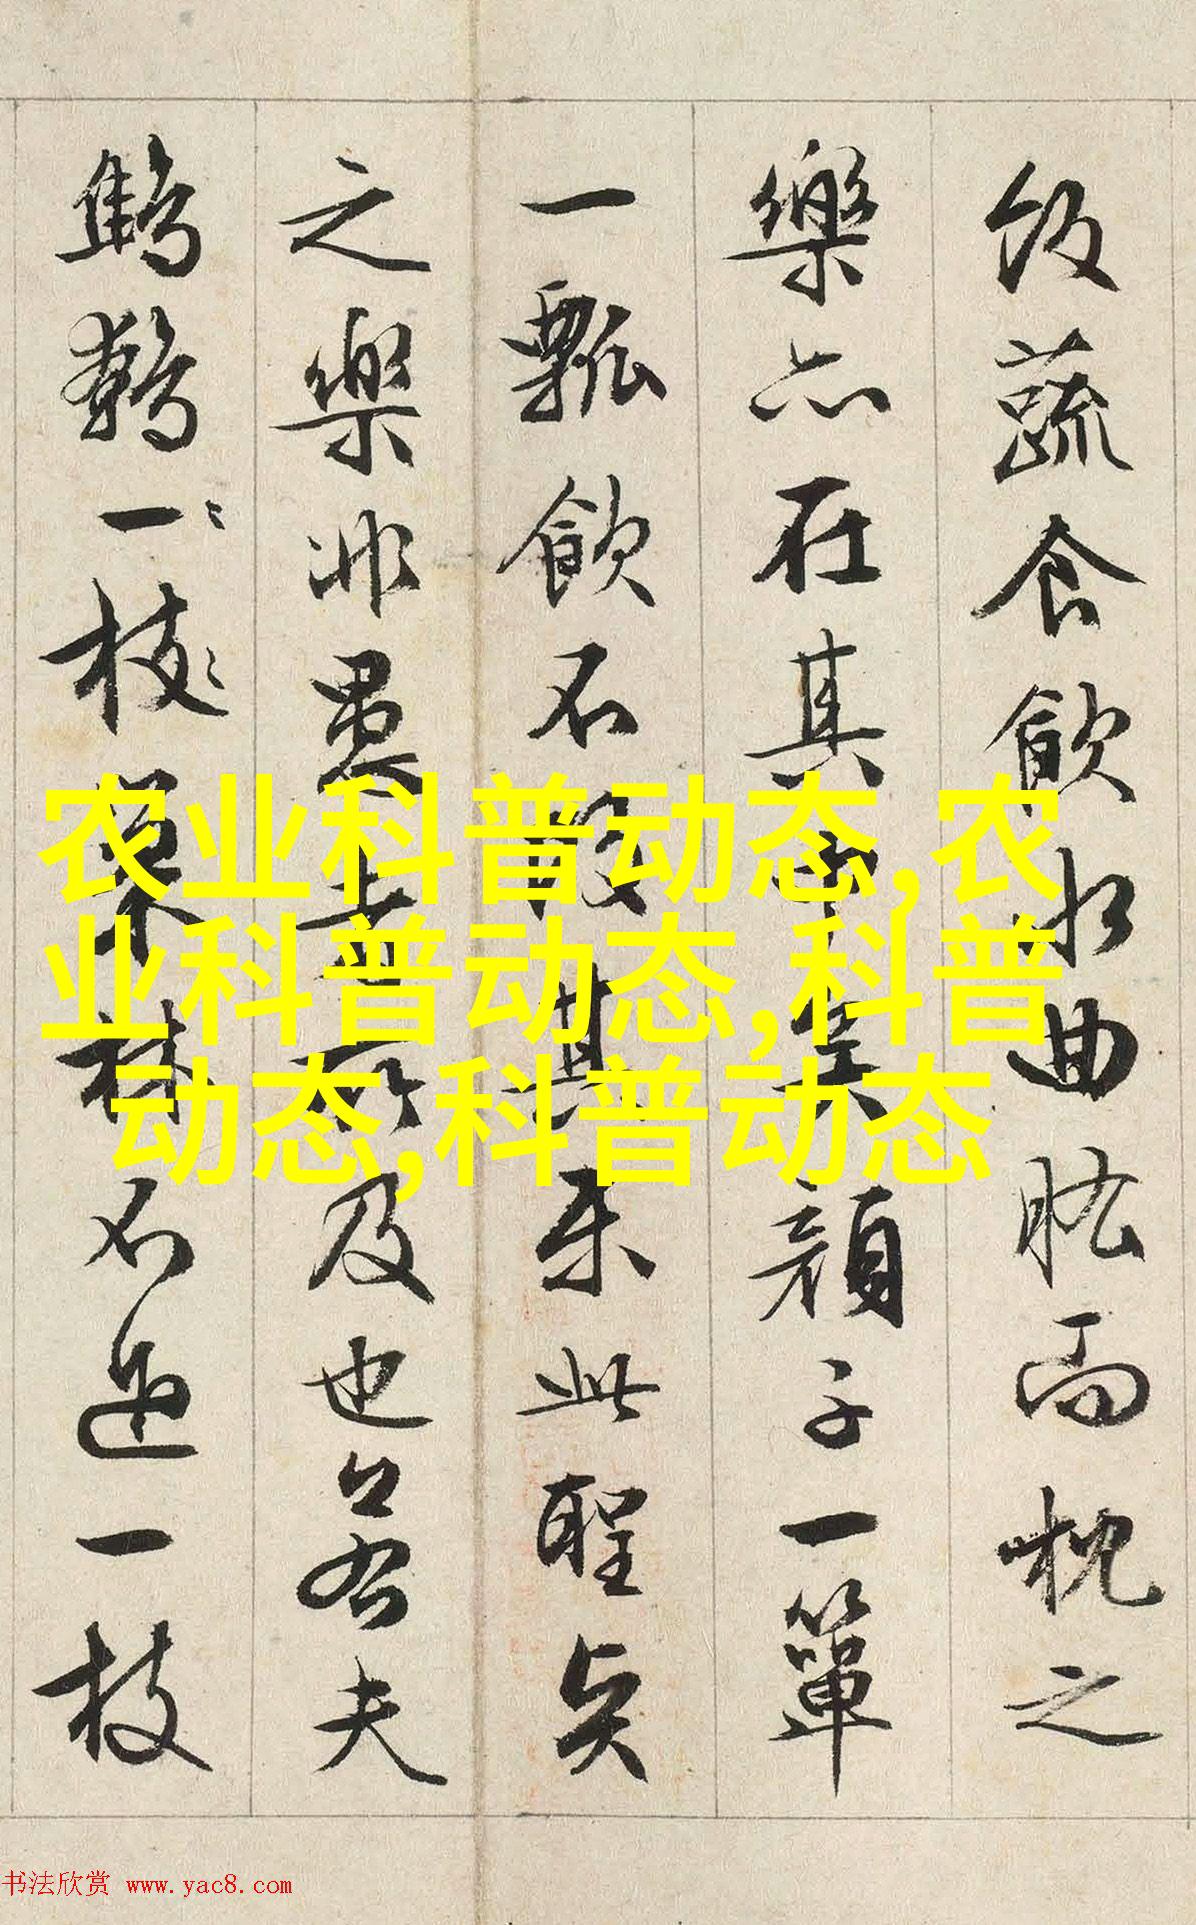 飯蔬食飲水曲肱而枕之
樂亦在其中矣顏子一簞
一瓢飲不改其樂此聖賢
之樂非愚者所及也若夫
鷦鷯一枝巢林不過一枝
农业科普动态,农
业科普动态,科普
动态,科普动态
书法欣赏 www.yac8.com